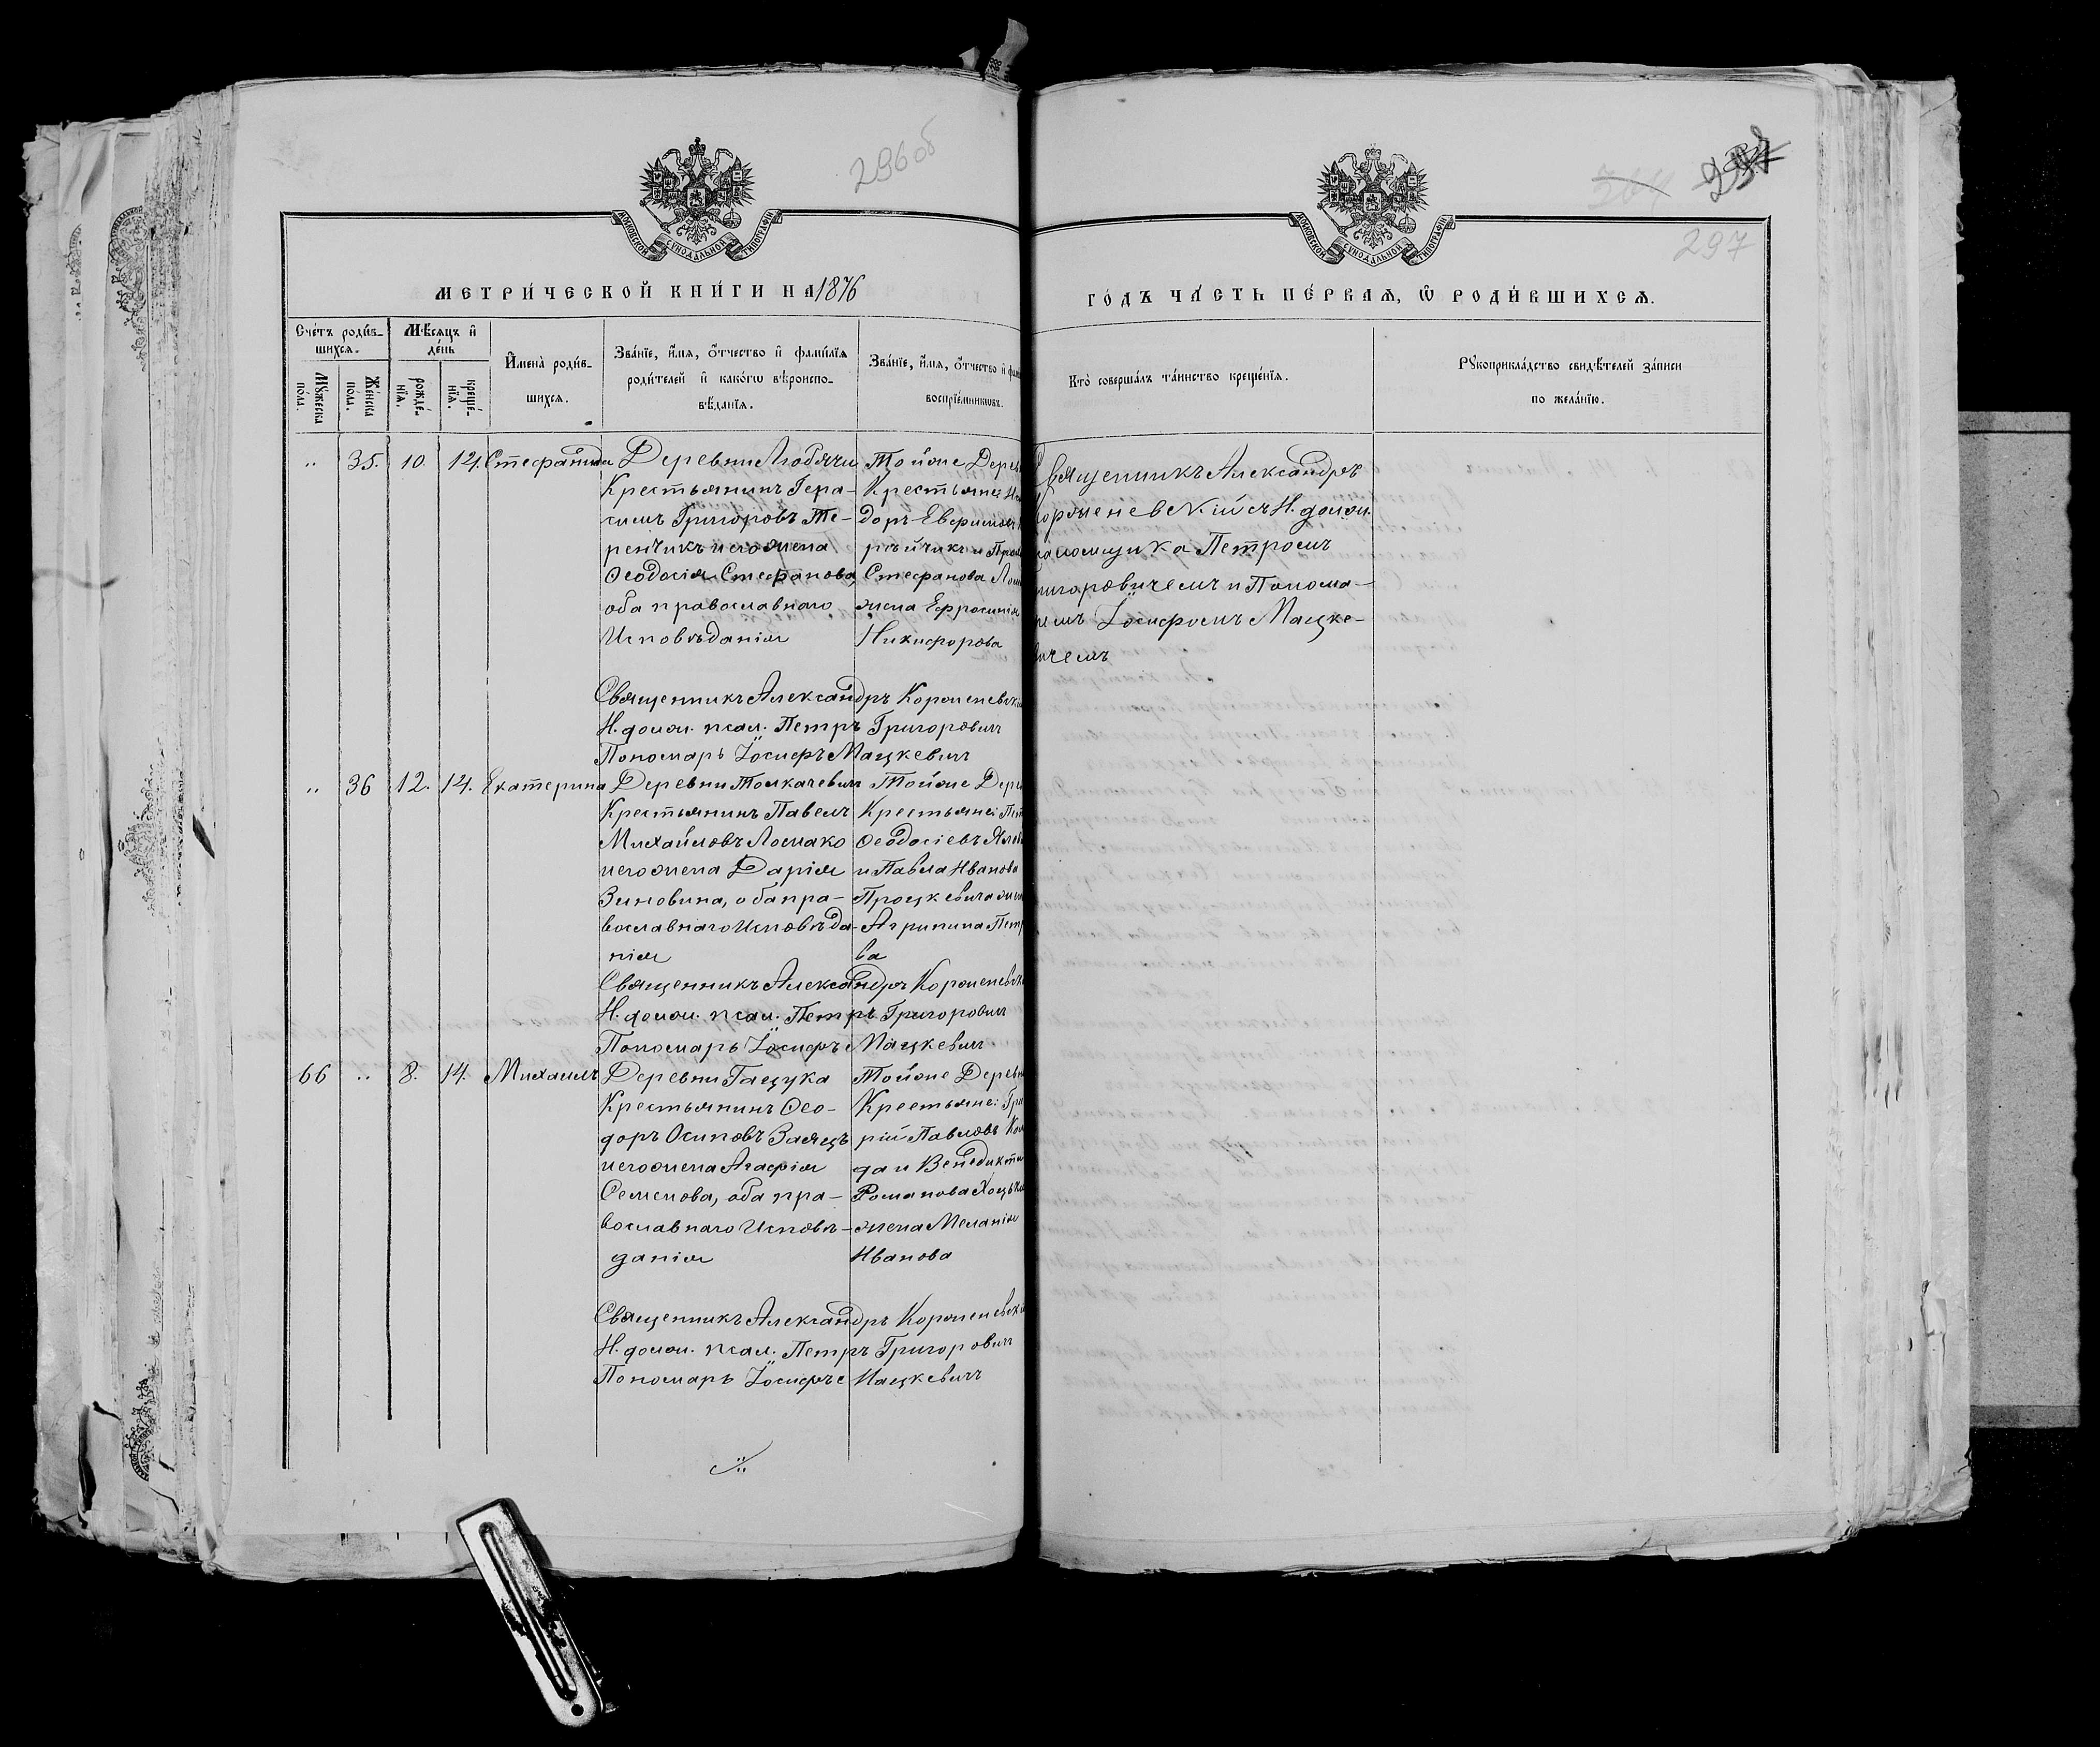 296об
297
МОСКОВСКОЙ СѴНОДАЛЬНОЙ ТИПОГРАФІИ
МОСКОВСКОЙ СѴНОДАЛЬНОЙ ТИПОГРАФІИ
МЕТРИ́ЧЕСКОЙ КНИ́ГИ НА 1876
ГО́ДЪ ЧА́СТЬ ПЕ́РВАѦ, Ѡ҆ РОДИ́ВШИХСѦ.
Сче́тъ роди́в-
шихсѧ.
Мꙋ́жеска
пола.
Же́нска
пола.
Мѣ́сѧцъ и҆
де́нь
рожде́-
нїѧ.
креще́-
нїѧ.
И҆мена̀ роди́в-
шихсѧ.
Зва́нїе, и҆́мѧ, ѻ҆́тчество и҆ фами́лїѧ
роди́телей и҆ како́гѡ вѣроиспо-
вѣ́данїѧ.
Зва́нїе, и҆́мѧ, ѻ҆́тчество и҆
воспрїе́мникѡвъ.
Кто̀ соверша́лъ та́инство креще́нїѧ.
Рꙋкоприкла́дство свидѣ́телей за́писи
по жела́нїю.
„ 35. 10. 14. Стефанида
Деревни Любячи
Крестьянинъ Гера-
симъ Григоровъ Те-
ренчикъ и его жена
Ѳеодосія Стефанова,
оба православнаго
Исповѣданія
Тойже Дерев
Крестьяне:
доръ Евфимовъ
Стефанова
жена Ефросинія
Никифорова
Священникъ Александръ
съ И. долж.
Петромъ
Григоровичемъ и Понома-
ремъ Іосифомъ Мацке-
вичемъ
Священникъ Александръ Корженевскій
И. долж. псал. Петръ Григоровичъ
Пономарь Іосифъ Мацкевичъ
„ 36 12. 14. Екатерина
Деревни Толкачевичъ
Крестьянинъ Павелъ
Михайловъ Лосмако
и его жена Дарія
Зиновина, оба пра-
вославнаго Исповѣда-
нія
Тойже Дерев
Крестьяне:
Ѳеодосіевъ
и Павла Иванова
Процкевича
Агрипина Петро
ва
Священникъ Александръ Корженевск
И. долж. псал. Петръ Григоровичъ
Пономарь Іосифъ Мацкевичъ
66 „ 8. 14. Михаилъ
Деревни Гащука
Крестьянинъ Ѳео-
доръ Осиповъ Заяцъ
и его жена Агафія
Семенова, оба пра-
вославнаго Исповѣ-
данія
Тойже Деревн
Крестьяне: Гри
рій Павловъ
да и Венедикта
Романова
жена Меланія
Иванова
Священникъ Александръ Корженевскій
И. долж. псал. Петръ Григоровичъ
Пономарь Іосифъ Мацкевичъ